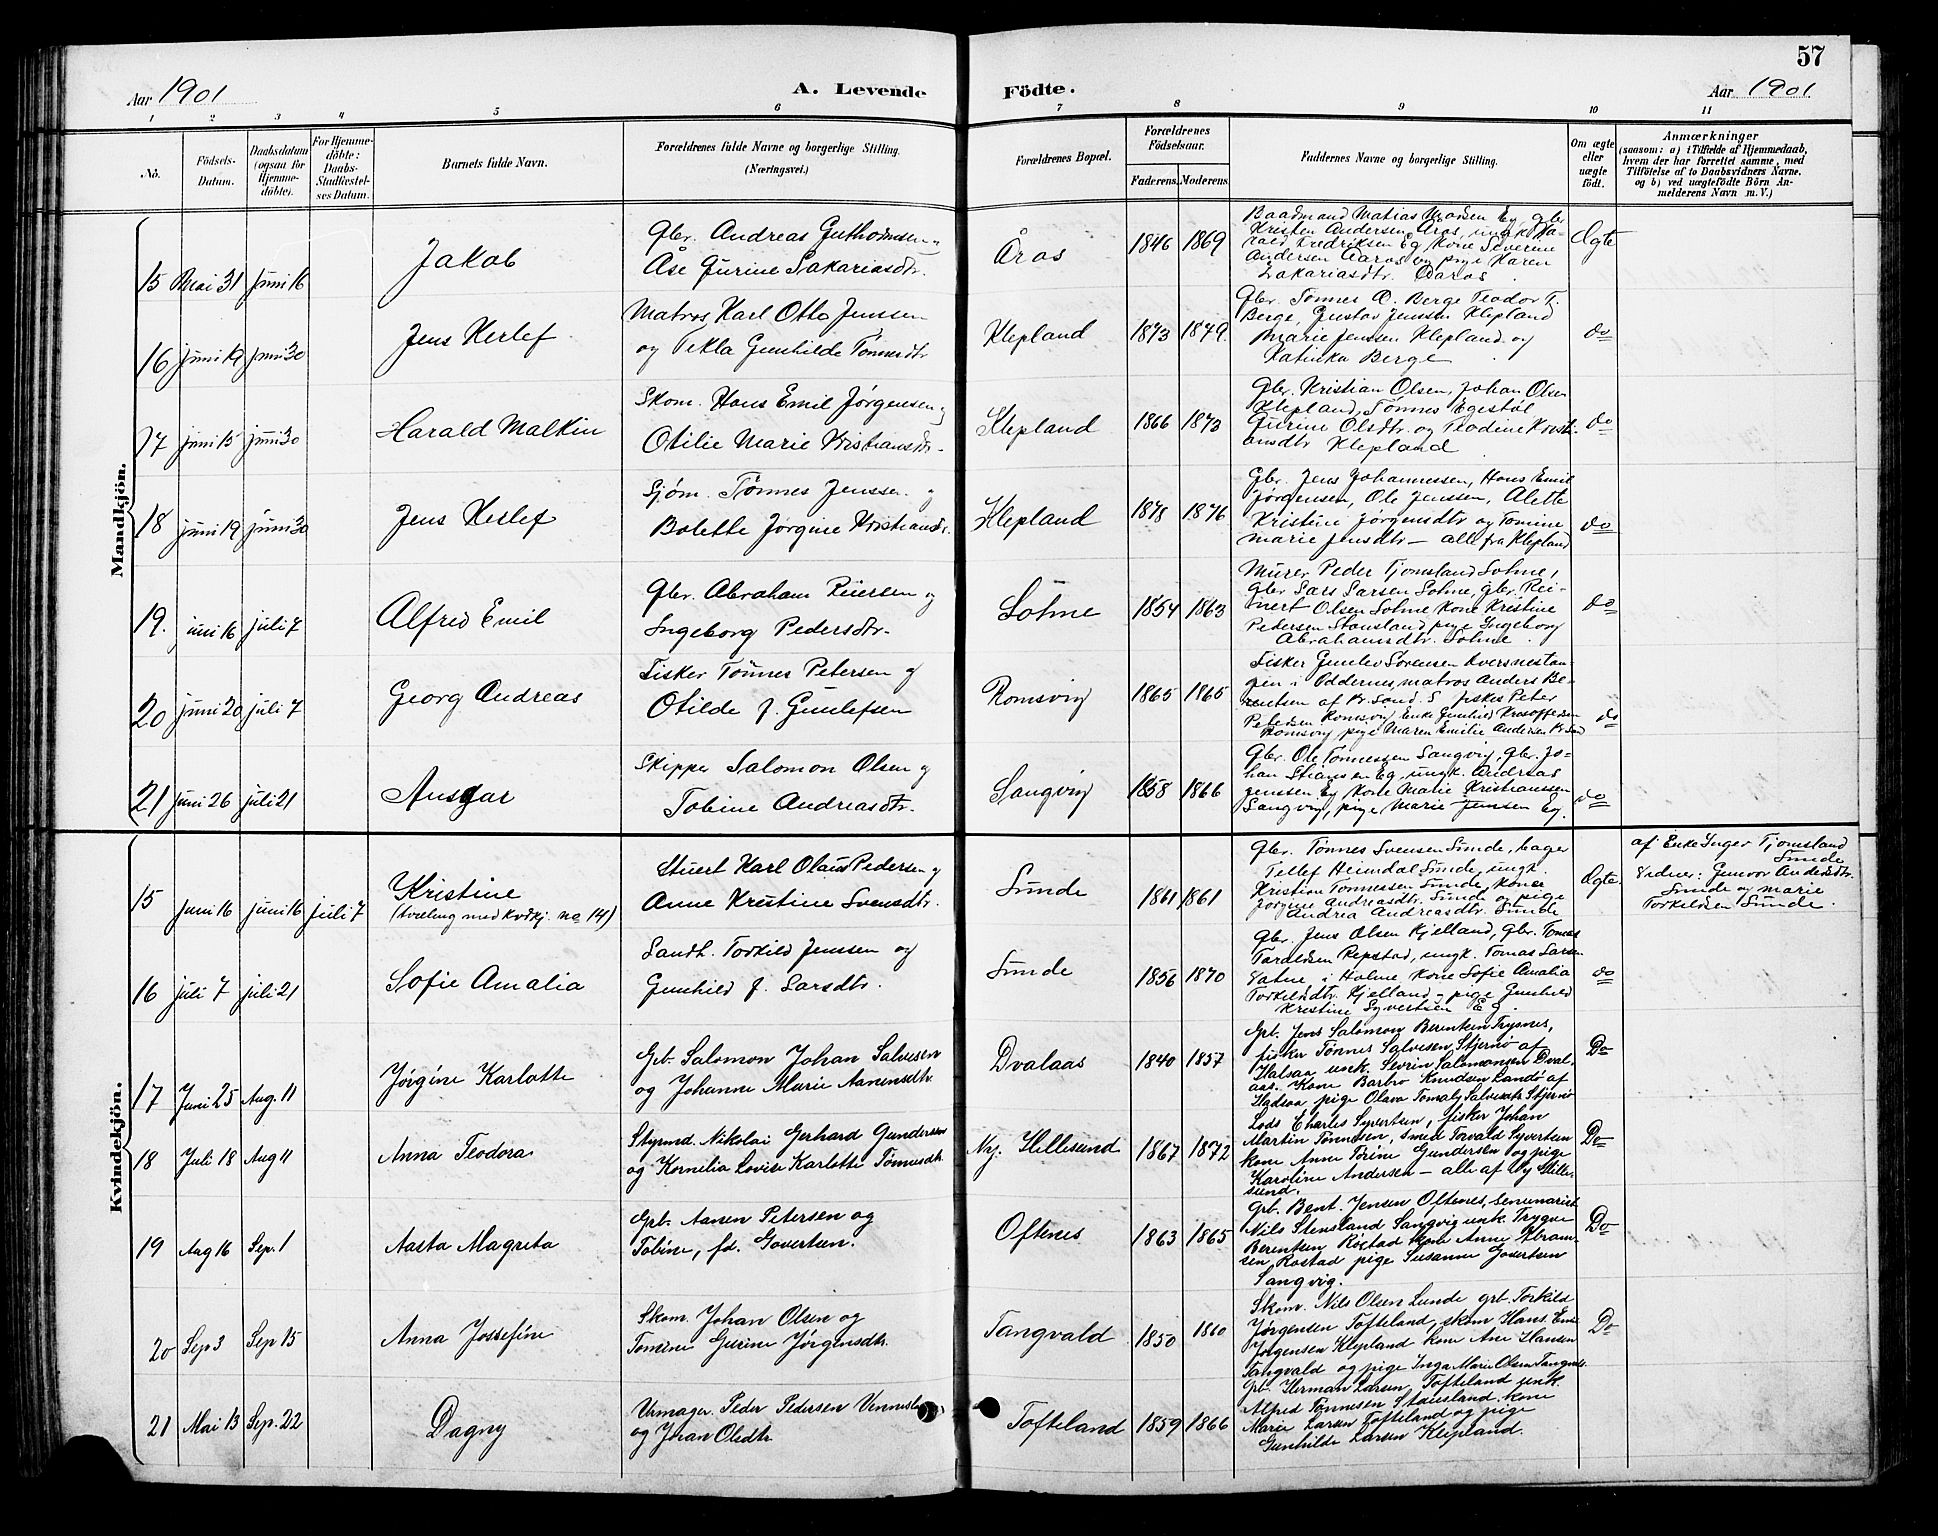 57
Aar 1901
A. Levende
Födte.
Aar 1901
1 2 3 4 5 6 7 8 9 10 11
No.
Födsels-
Datum.
Daabsdatum
(ogsaa for
Hjemme-
döbte).
For Hjemme-
döbte:
Daabs-
Stadfæstel-
ses Datum.
Barnets fulde Navn.
Forældrenes fulde Navne og borgerlige Stilling.
(Næringsvei.)
Forældrenes Bopæl.
Forældrenes
Födselsaar.
Faderens.
Moderens.
Faddernes Navne og borgerlige Stilling.
Om ægte
eller
uægte
födt.
Anmærkninger
(saasom: a) i Tilfælde af Hjemmedaab,
hvem der har forrettet samme, med
Tilföielse af to Daabsvidners Navne,
og b) ved uægtefödte Börn An-
melderens Navn m. V.)
Mandkjön.
15 Mai 31 Juni 16
Jakob
Gbr. Andreas Guthormsen
Åse Gurine Sakariasdtr.
Åros
1846 1869
Baadmand Matias Monsen Eg, gbr
Kristen Andersen Åros, ungk.
Fredriksen Eg Kone Severine
Andersen Aaros og pige Karen
Zakariasdtr. Aaros
Ægte
16 Juni 19 Juni 30
Jens Herlef
Matros Karl Otto Jenssen
og Tekla Gunhilde Tönnesdtr
Klepland
1873 1849
Gbr. Tönnes O. Berge Teodor T.
Berge, Gustav Jenssen Klepland
Marie Jenssen Klepland og
Katinka Berge
do
17 Juni 15 Juni 30
Harald Malkin
Skom. Hans Emil Jørgensen og
Otilie Marie Kristiansdtr.
Klepland
1866 1873
Gbr. Kristian Olsen, Johan Olsen
Klepland, Tönnes Egestöl
Gurine Olsdtr. og Teodine Kristi-
ansdtr Klepland
do
18 Juni 19 Juni 30
Jens Herlef
Sjöm. Tönnes Jenssen og
Bolette Jørgine Kristiansdtr.
Klepland
1878 1876
Gbr. Jens Johannessen, Hans Emil
Jørgensen, Ole Jenssen, Alette
Kristine Jørgensdtr og Tomine
Marie Jensdtr – alle fra Klepland
do
19. Juni 16 Juli 7
Alfred Emil
Gbr. Abraham Reiersen og
Ingeborg Pedersdtr.
Söhme
1854 1863
Murer Peder Tjomsland Sohme,
gbr Lars Larsen Sohme, gbr. Rei-
nert Olsen Sohme Kone Kristine
Pedersen Stausland pige Ingeborg
Abrahamsdtr. Sohme.
do
20 Juni 20 Juli 7
Georg Andreas
Fisker Tönnes Petersen og
Otilde f. Gunlefsen
Romsvig
1865 1865
Fisker Gunlev Sörensen Kversnestan-
gen i Oddernes, matros Anders Be-
rentsen af Kr.sand. S fisker Peter
Petersen Romsvig Enke Gunhild Kristoffersen
Romsvig, pige Maren Emilie Andersen Kr.sand
do
21 Juni 26 Juli 21
Ansgar
Skipper Salomon Olsen og
Tobine Andreasdtr.
Sangvig
1858 1866
Gbr. Ole Tönnessen Sangvig, Gbr. Jo-
han Stiansen Eg, ungk. Andreas
Jenssen Eg Kone Marie Kristiansen
Sangvig, pige Marie Jenssen Eg.
do
Kvindekjön.
15 Juni 16 Juni 16 Juli 7
Kristine
(tvilling med Kvdkj. no 14)
Stuert Karl Olaus Pedersen og
Anne Kristine Svensdtr.
Sunde
1861 1861
Gbr. Tönnes Svensen Sunde, bager
Tellef Heimdal Sunde, ungk.
Kristian Tönnessen Sunde, Koner
Jorgine Andreasdtr. Sunde og pige
Andrea Andreasdtr. Sunde
Ægte.
af Enke Inger Tjomsland
Sunde
Vidner: Gunvor Andersdtr.
Sunde og Marie
Torkildsen Sunde.
16 Juli 7 Juli 21
Sofie Amalia
Landh. Torkild Jenssen og
Gunhild f. Larsdtr.
Sunde
1856 1870
Gbr. Jens Olsen Kjelland, Gbr. Tomas
Taraldsen Repstad, ungk. Tomas Larsen
Vatne i Holme Kone Sofie Amalia
Torkildsdtr. Kjelland – pige Gunhild
Kristine Syvertsen Eg.
do
17 Juni 25 Aug. 11
Jørgine Karlotte
Grb. Salomon Johan Salvesen
og Johanne Marie Aanensdtr.
Dvalaas
1840 1857
Grb. Jens Salomon Berentsen Trysnes,
fisker Tønnes Salvesen Stjernø af
Halsaa unk. Sevrin Salomonsen Dval-
aas. Kone Barbro Knudsen Landø af
Halsaa pige Olava Tomaly Salvesdtr Stjernø
Do
18 Juli 18 Aug 11
Anna Teodora
Styrmd. Nikolai Gerhard Gundersen
og Kornelia Lovise Karlotte Tønnesdtr.
Ny. Hellesund
1867 1872
Lods Charles Syvertsen, fisker Johan
Martin Tønnesen, smed Torvald Syvertsen
kone Anne Torine Gundersen og pige
Karoline Andersen – alle af Ny Helle-
sund.
Do
19 Aug 16 Sep. 1
Aasta Magreta
Grb. Aanen Petersen og
Tobine, fd. Govertsen.
Oftenes
1863 1865
Grb. Bent. Jensen Oftenes, Seminarist
Nils Stensland Sangvig unk. Trygve
Berentsen Røstad kone Anne Abram-
sen Røstad pige Susanne Govertsen
Sangvig.
Do
20 Sep 3 Sep 15
Anna Josefine
Skom. Johan Olsen og
Tomine Gurine Jørgensdtr.
Tangvald
1850 1860
Skom. Nils Olsen Lunde grb. Torkild
Jørgensen Tofteland, skom Hans Emil
Jørgensen Klepland kone Ane Hansen
Tangvald og pige Inga Marie Olsen Tangvald.
Do
21 Mai 13 Sep. 22
Dagny
Urmager. Peder Pedersen
og Joran Olsdtr
Tofteland
1859 1866
Grb. Herman Larsen, Tofteland unk.
Alfred Tønnesen Stausland, kone
Marie Larsen Tofteland og pige
Gunhilde Larsen Klepland.